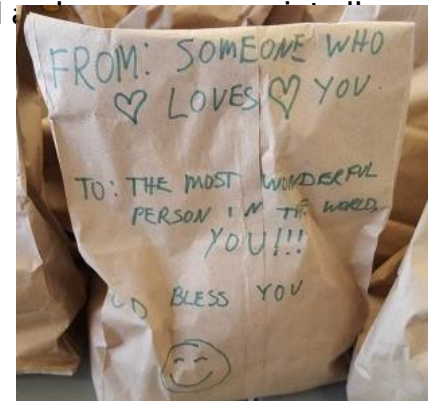 FROM: SOMEONE WHO
♡ LOVES ♡ YOU
TO: THE MOST WONDERFUL
PERSON IN THE WORLD
YOU!!!
BLESS YOU